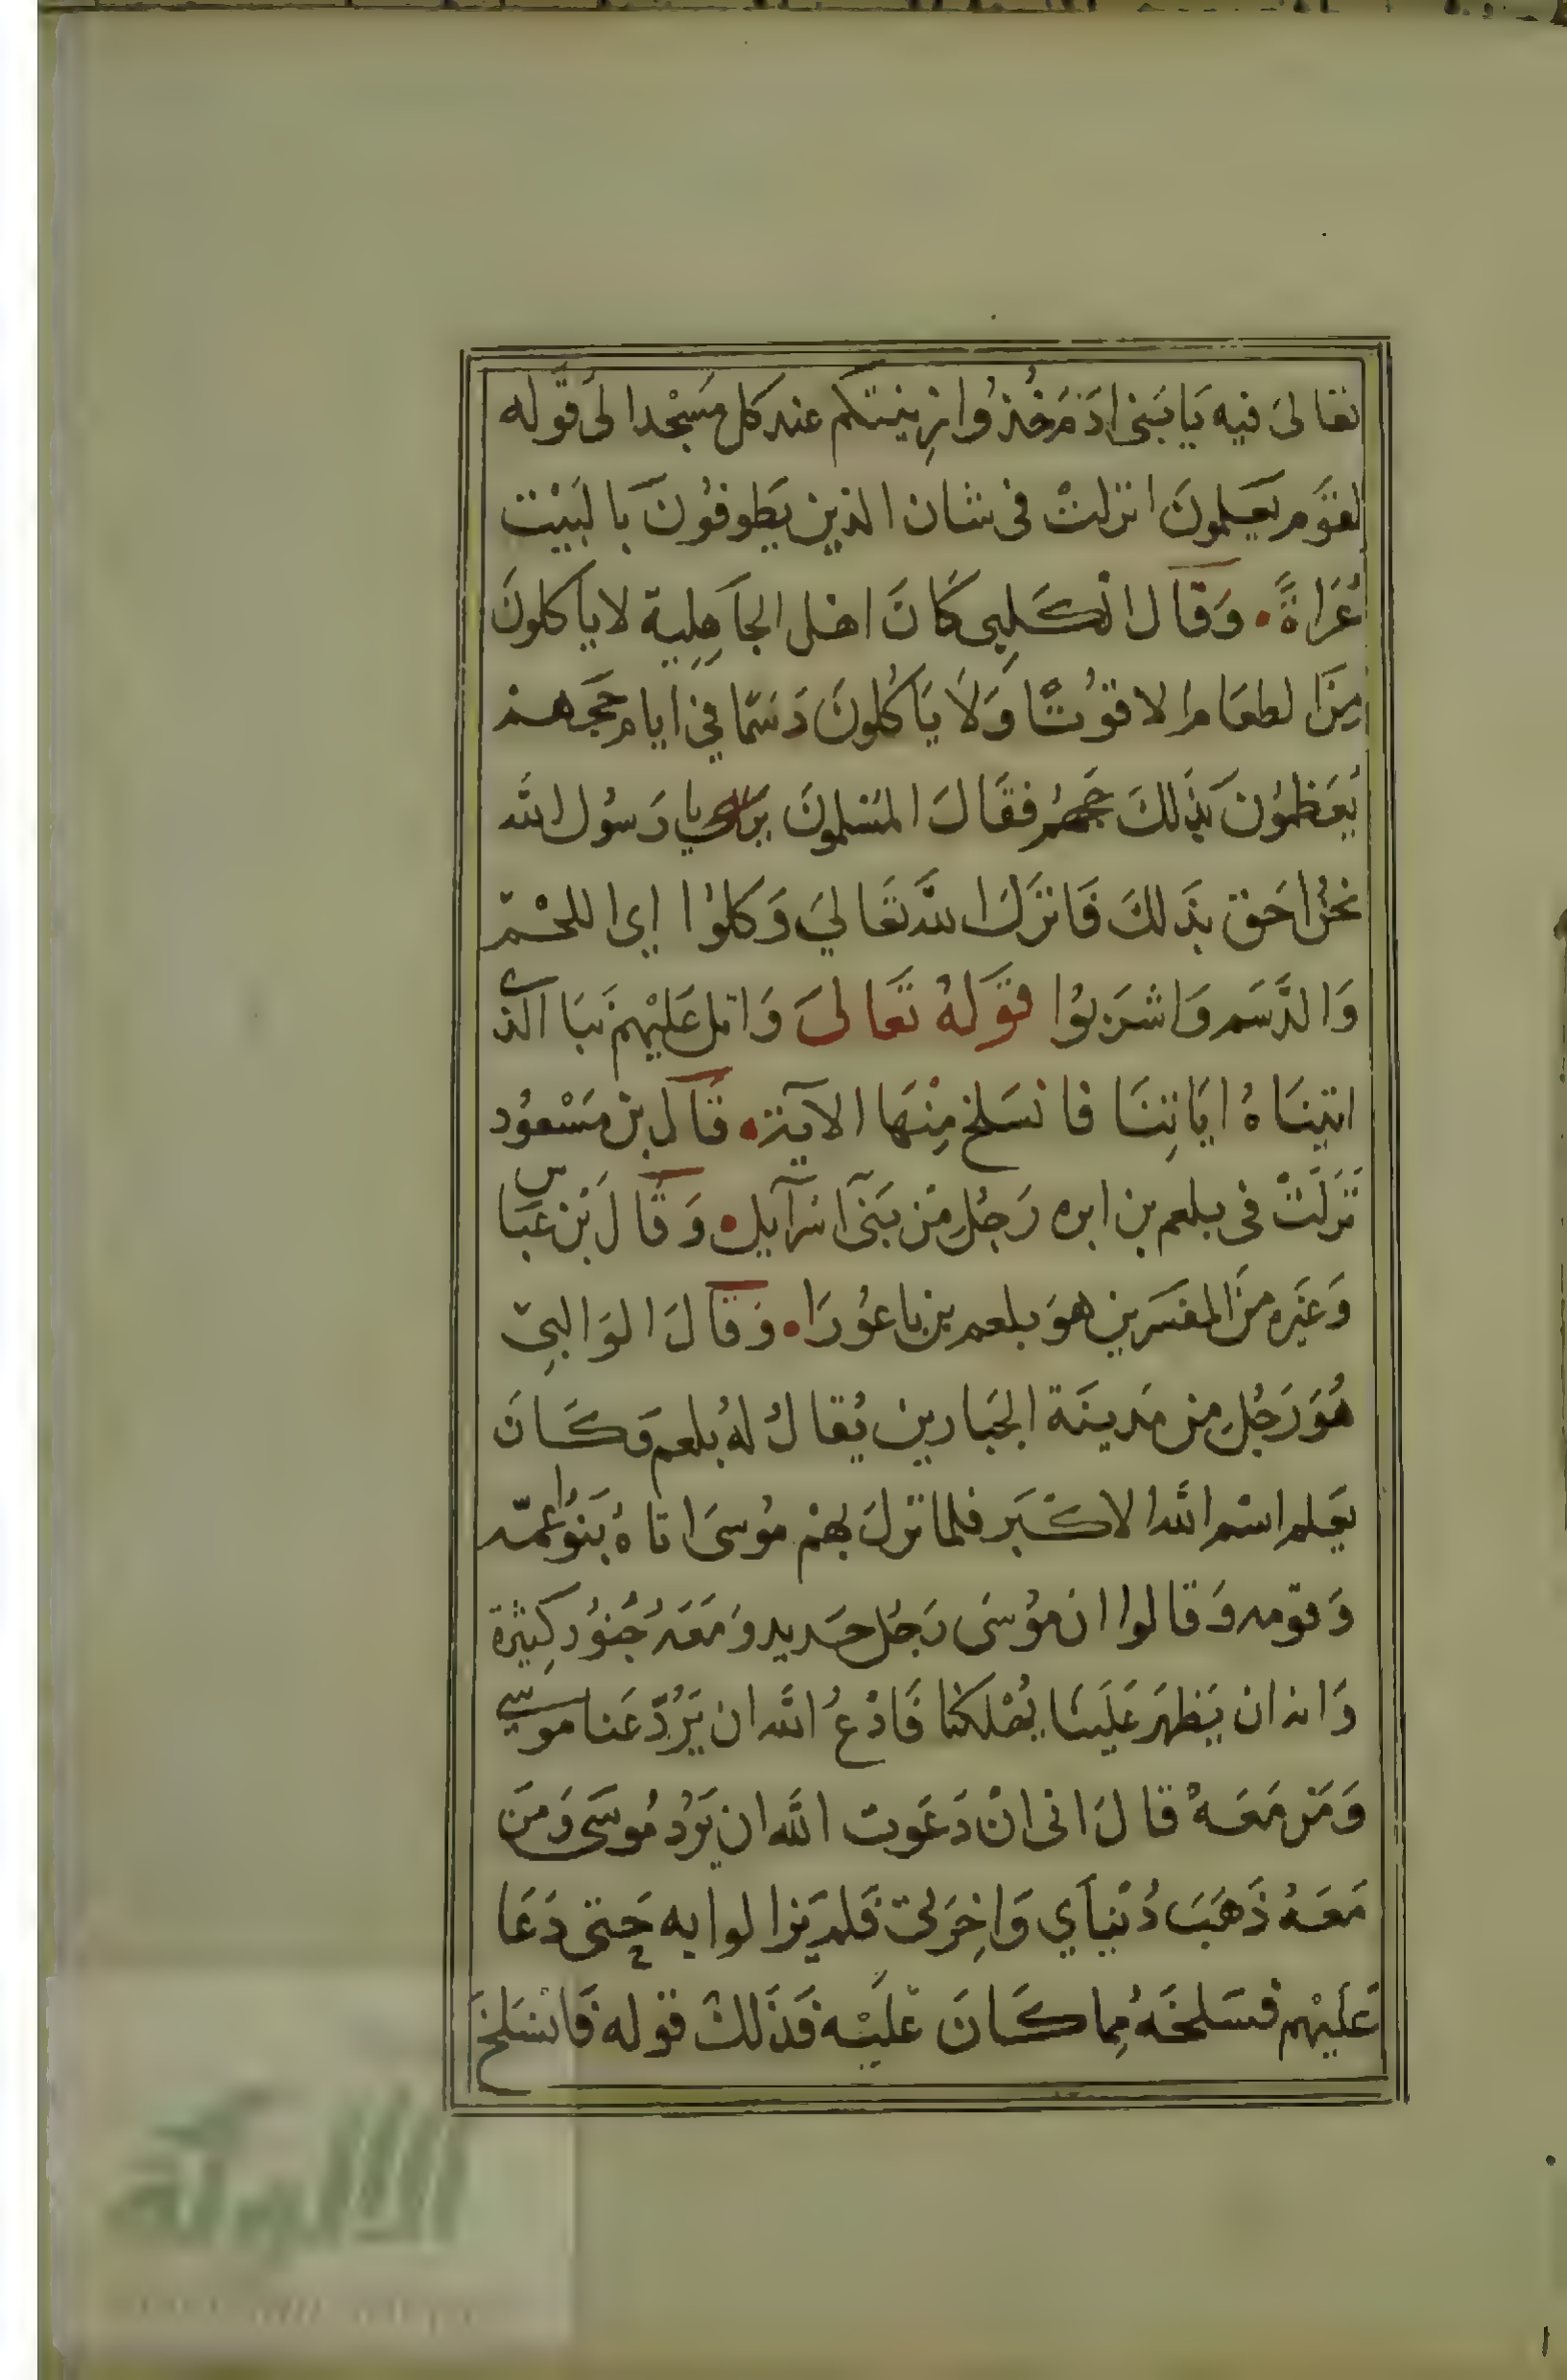 تعالى فيه يا بني ادم خذوا زينتكم عند كل مسجد الى قوله
لقوم يعلمون انزلت في شان الذين يطوفون بالبيت
عراة وقال الكلبي كان اهل الجاهلية لا ياكلون
من الطعام الا قوتا ولا ياكلون دسما في ايام حجهم
يعظمون بذلك حجهم فقال المسلمون يا رسول الله
نحن احق بذلك فانزل الله تعالى وكلوا اي اللحم
والدسم واشربوا قوله تعالى واتل عليهم نبا الذي
اتيناه اياتنا فانسلخ منها الآية قال بن مسعود
نزلت في بلعم بن ابره رجل من بني اسرآيل وقال بن عباس
وغيره من المفسرين هو بلعم بن باعورا وقال الوالبي
هو رجل من مدينة الجبارين يقال له بلعم وكان
يعلم اسم الله الاكبر فلما نزل بهم موسى اتاه بنوا عمه
وقومه وقالوا ان موسى رجل حديد ومعه جنود كثيرة
وانه ان يظهر علينا يهلكنا فادع الله ان يرد عنا موسى
ومن معه قال اني ان دعوت الله ان يرد موسى ومن
معه ذهب دنياي واخرتي فلم يزالوا به حتى دعا
عليهم فسلخه مما كان عليه فذلك قوله فانسلخ
الألوكة